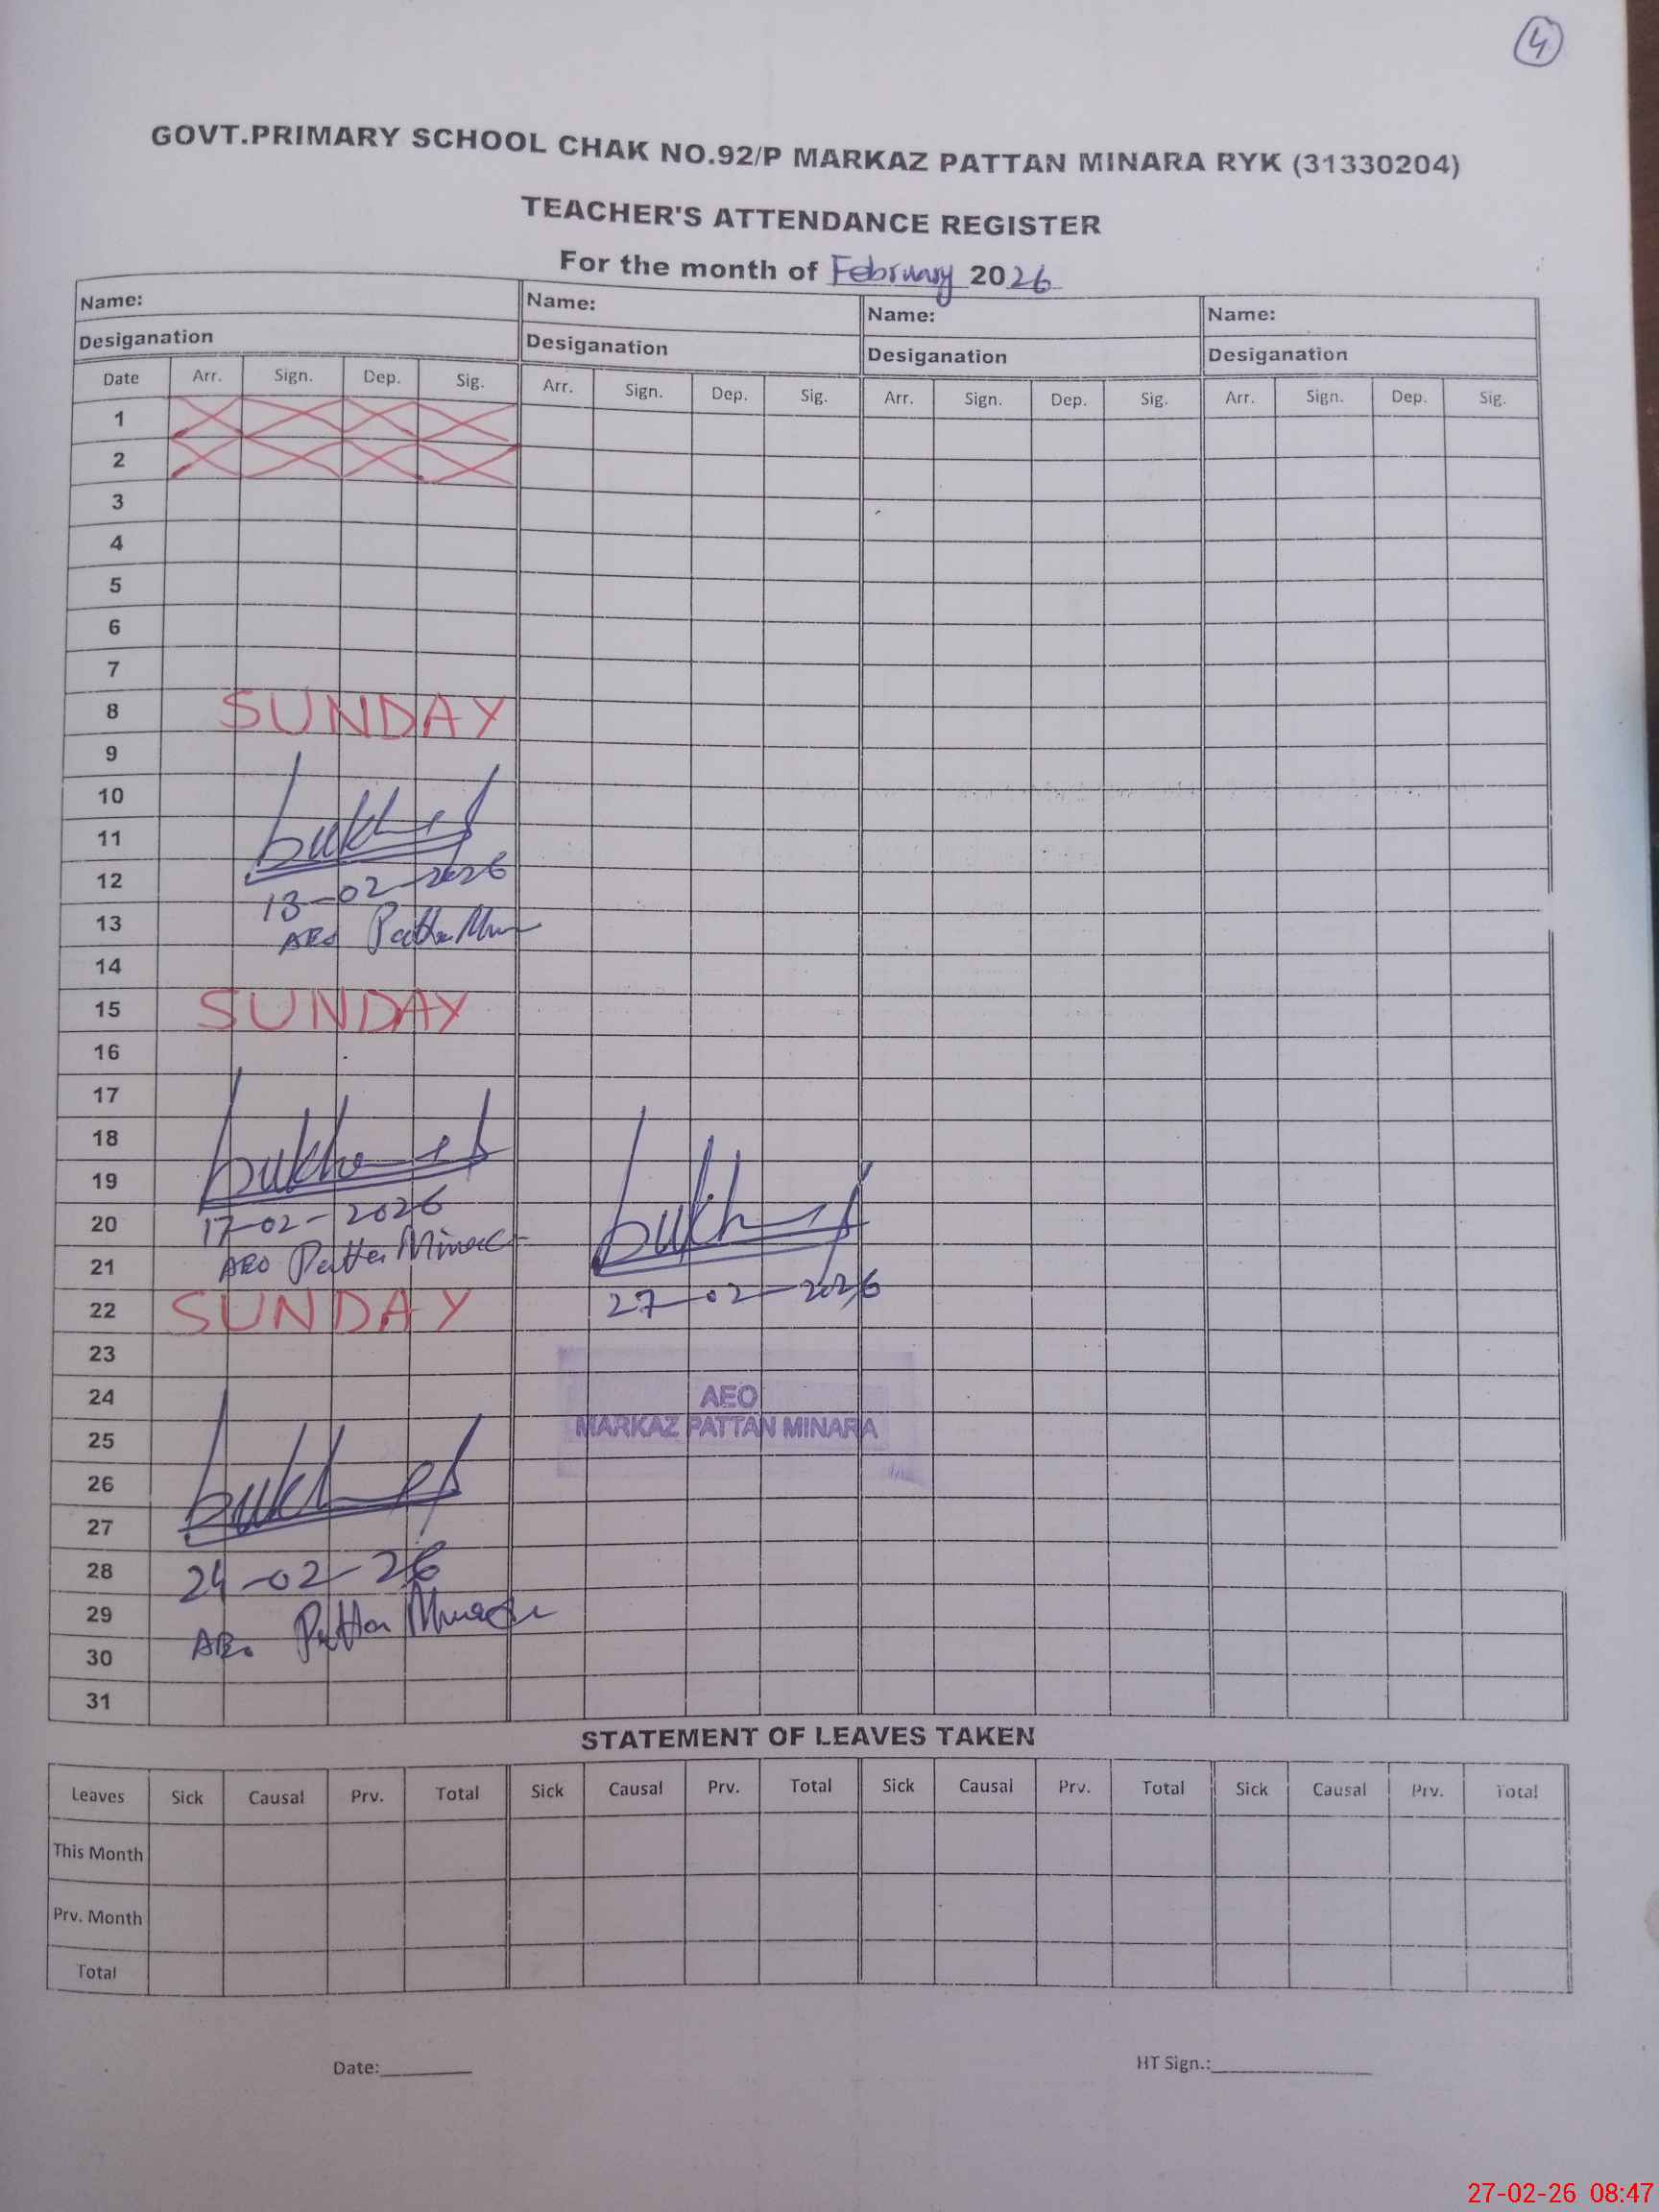 4
GOVT.PRIMARY SCHOOL CHAK NO.92/P MARKAZ PATTAN MINARA RYK (31330204)
TEACHER'S ATTENDANCE REGISTER
For the month of February 2026
Name: Name: Name: Name:
Desiganation Desiganation Desiganation Desiganation
Date Arr. Sign. Dep. Sig. Arr. Sign. Dep. Sig. Arr. Sign. Dep. Sig. Arr. Sign. Dep. Sig.
1
2
3
4
5
6
7
8 SUNDAY
9
10
11
12 13-02-2026
13 AEO
14
15 SUNDAY
16
17
18
19
20 17-02-2026
21 AEO
22 SUNDAY 27-02-2026
23
24 AEO
25 MARKAZ PATTAN MINARA
26
27
28 24-02-26
29
30
31
STATEMENT OF LEAVES TAKEN
Leaves Sick Causal Prv. Total Sick Causal Prv. Total Sick Causal Prv. Total Sick Causal Prv. Total
This Month
Prv. Month
Total
Date: HT Sign.:
27-02-26 08:47